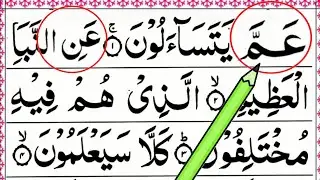 عَمَّ يَتَسَآءَلُوْنَ ۚ﴿۱﴾ عَنِ النَّبَاِ
الْعَظِيْمِ ۙ﴿۲﴾ الَّذِیْ هُمْ فِيْهِ
مُخْتَلِفُوْنَ ؕ﴿۳﴾ كَلَّا سَيَعْلَمُوْنَ ۙ﴿۴﴾